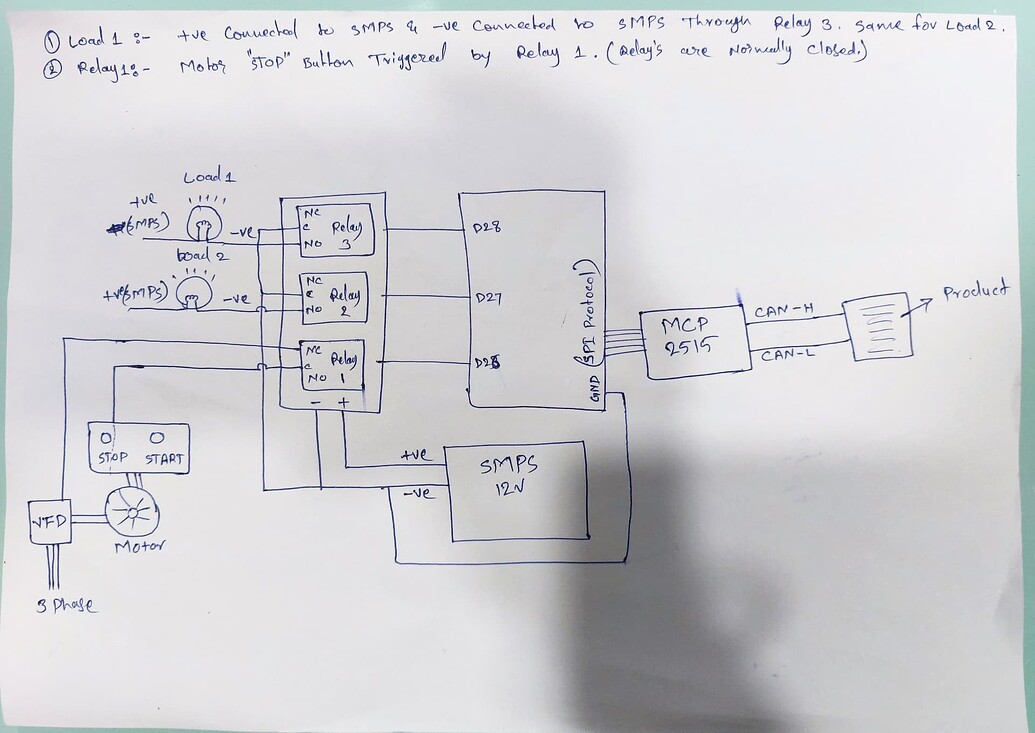 ① Load 1 :- +ve Connected to SMPS & -ve Connected to SMPS Through Relay 3. Same for Load 2.
② Relay 1 :- Motor "STOP" Button Triggered by Relay 1. (Relay's are Normally Closed.)
Load 1
+ve
(SMPS)
-ve
Load 2
+ve(SMPS)
-ve
NC
C
NO
Relay
3
NC
C
NO
Relay
2
NC
C
NO
Relay
1
- +
D28
D27
GND (SPI Protocol)
MCP
2515
CAN-H
CAN-L
Product
STOP START
VFD
Motor
3 Phase
+ve
-ve
SMPS
12V